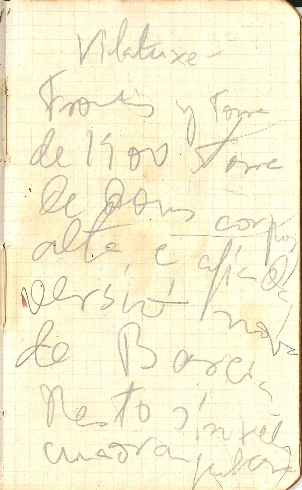 Vilatuxe -
Frontis y torre
de 1900 Torre
de dous corpos
alta e afiada
versió nova
de
Resto sin
cuadrangular